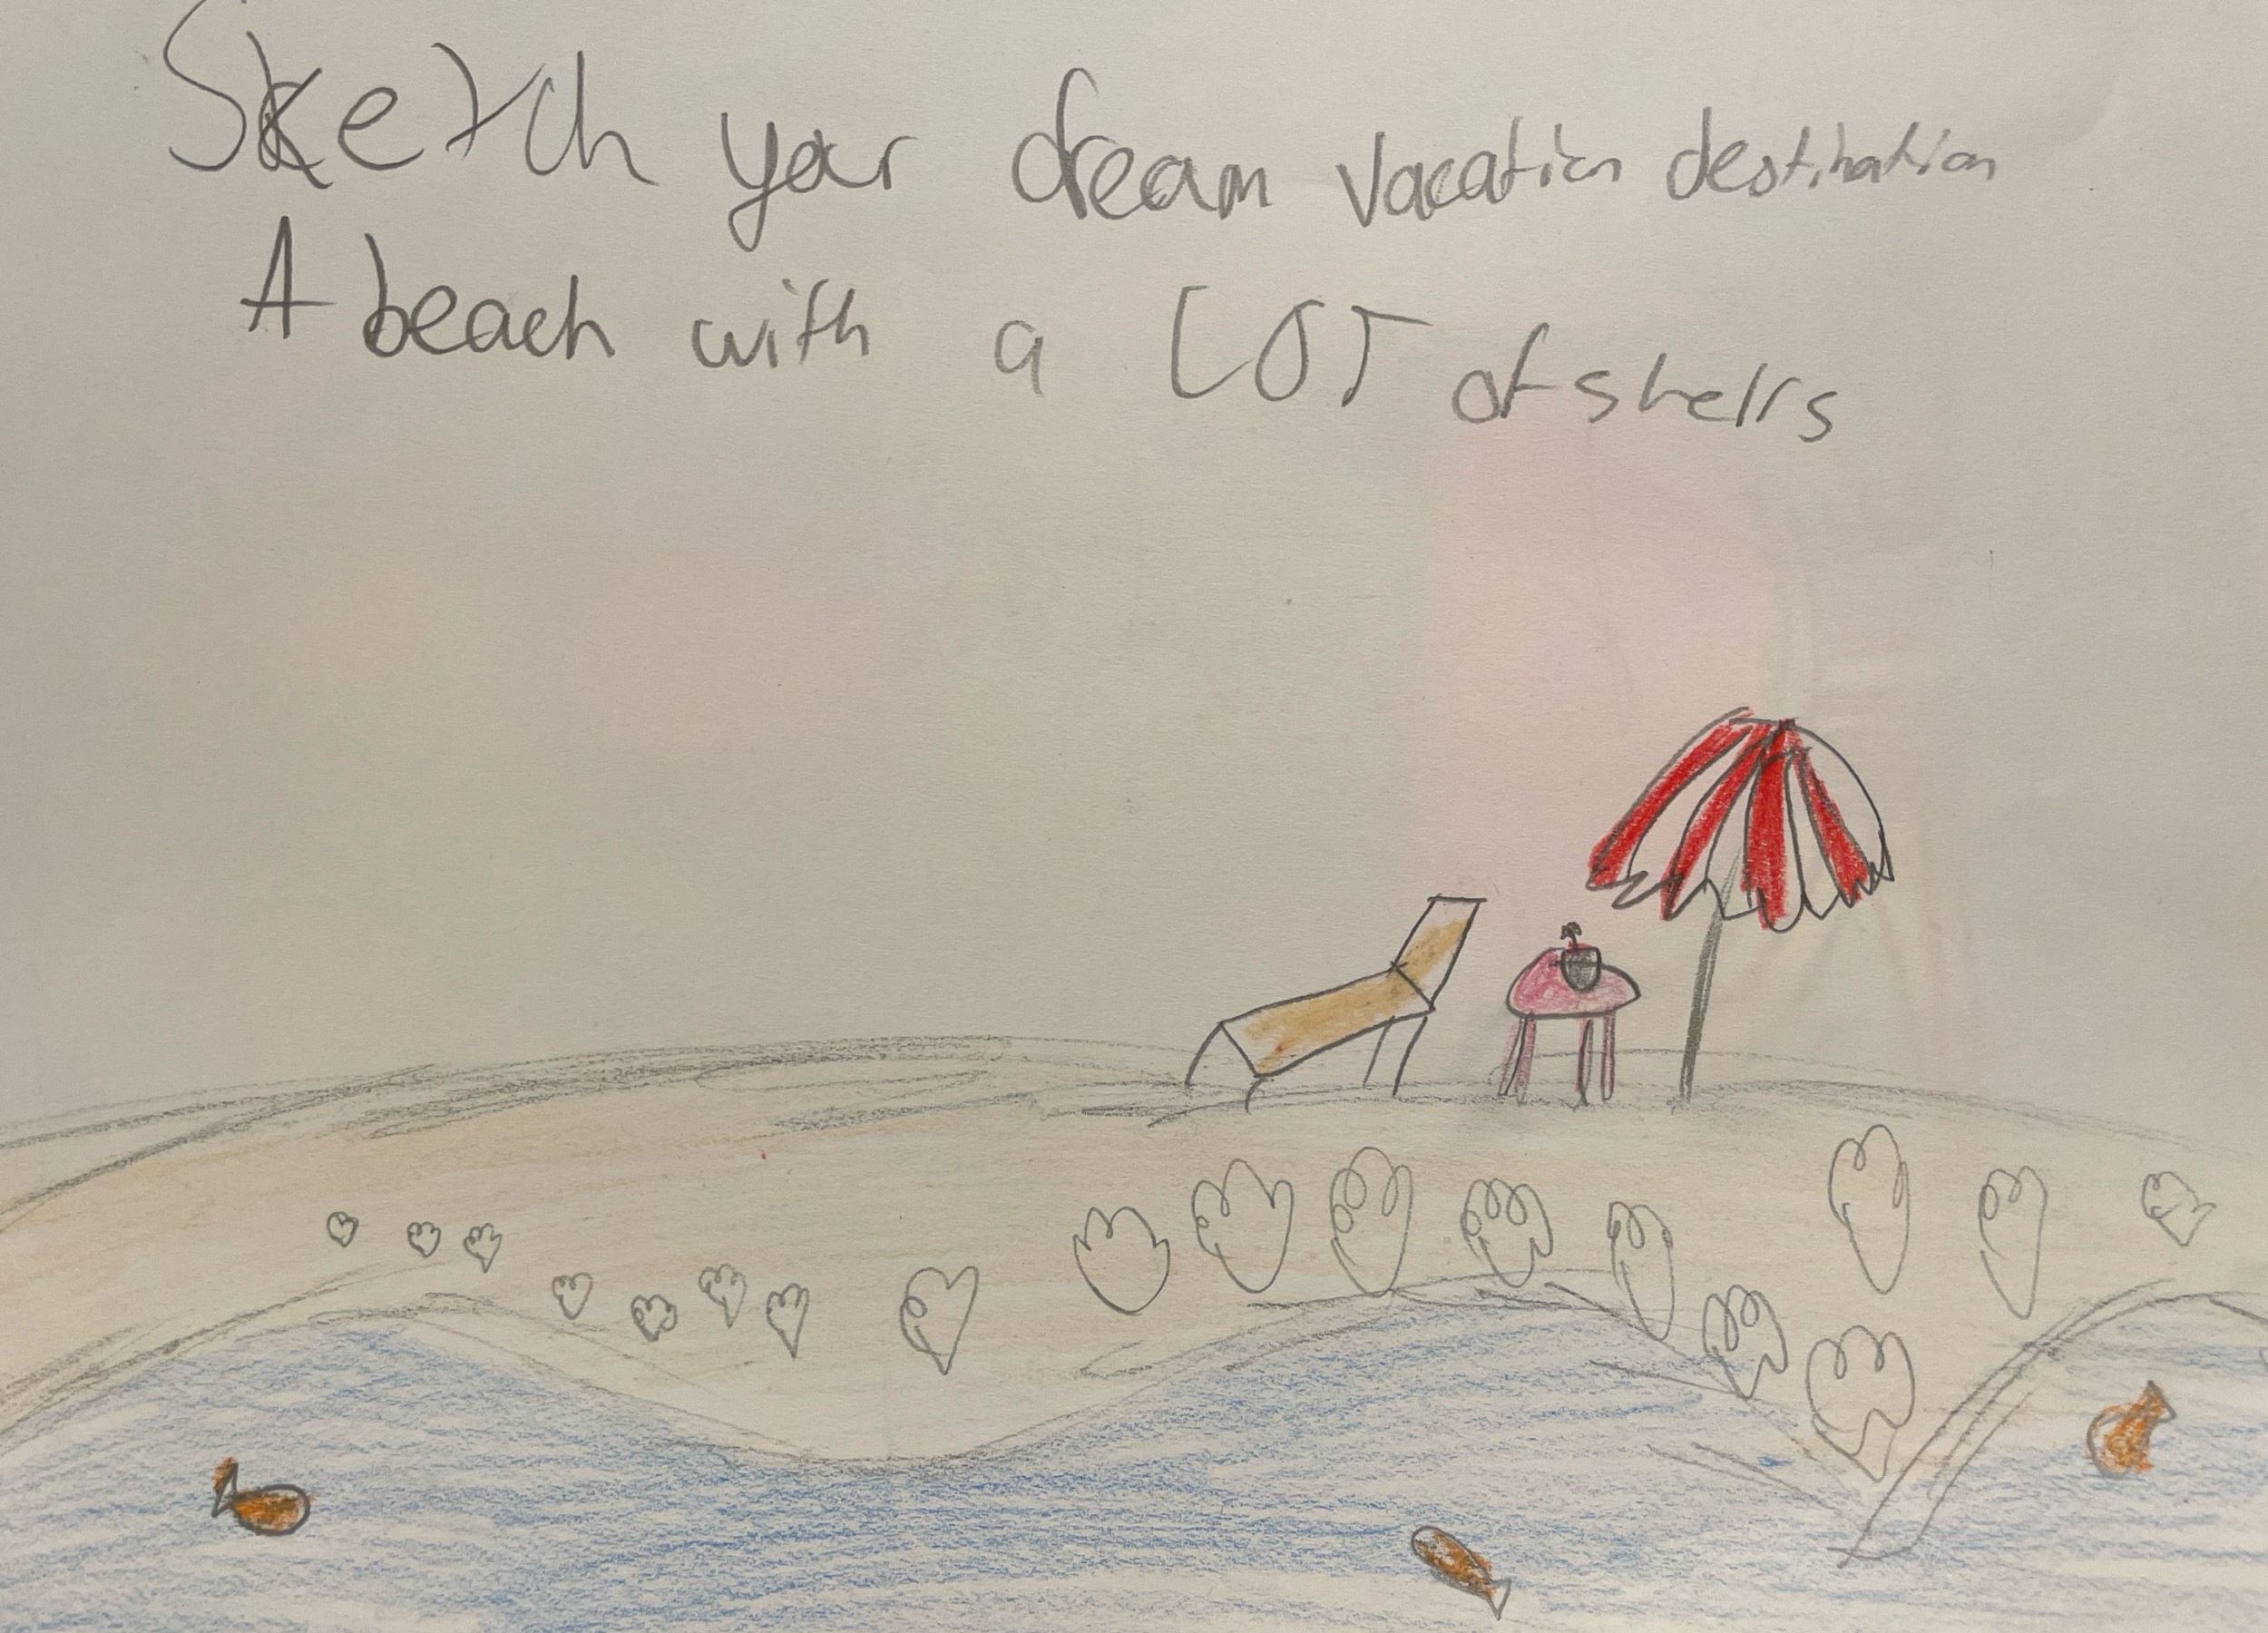 Sketch your dream vacation destination
A beach with a LOT of shells